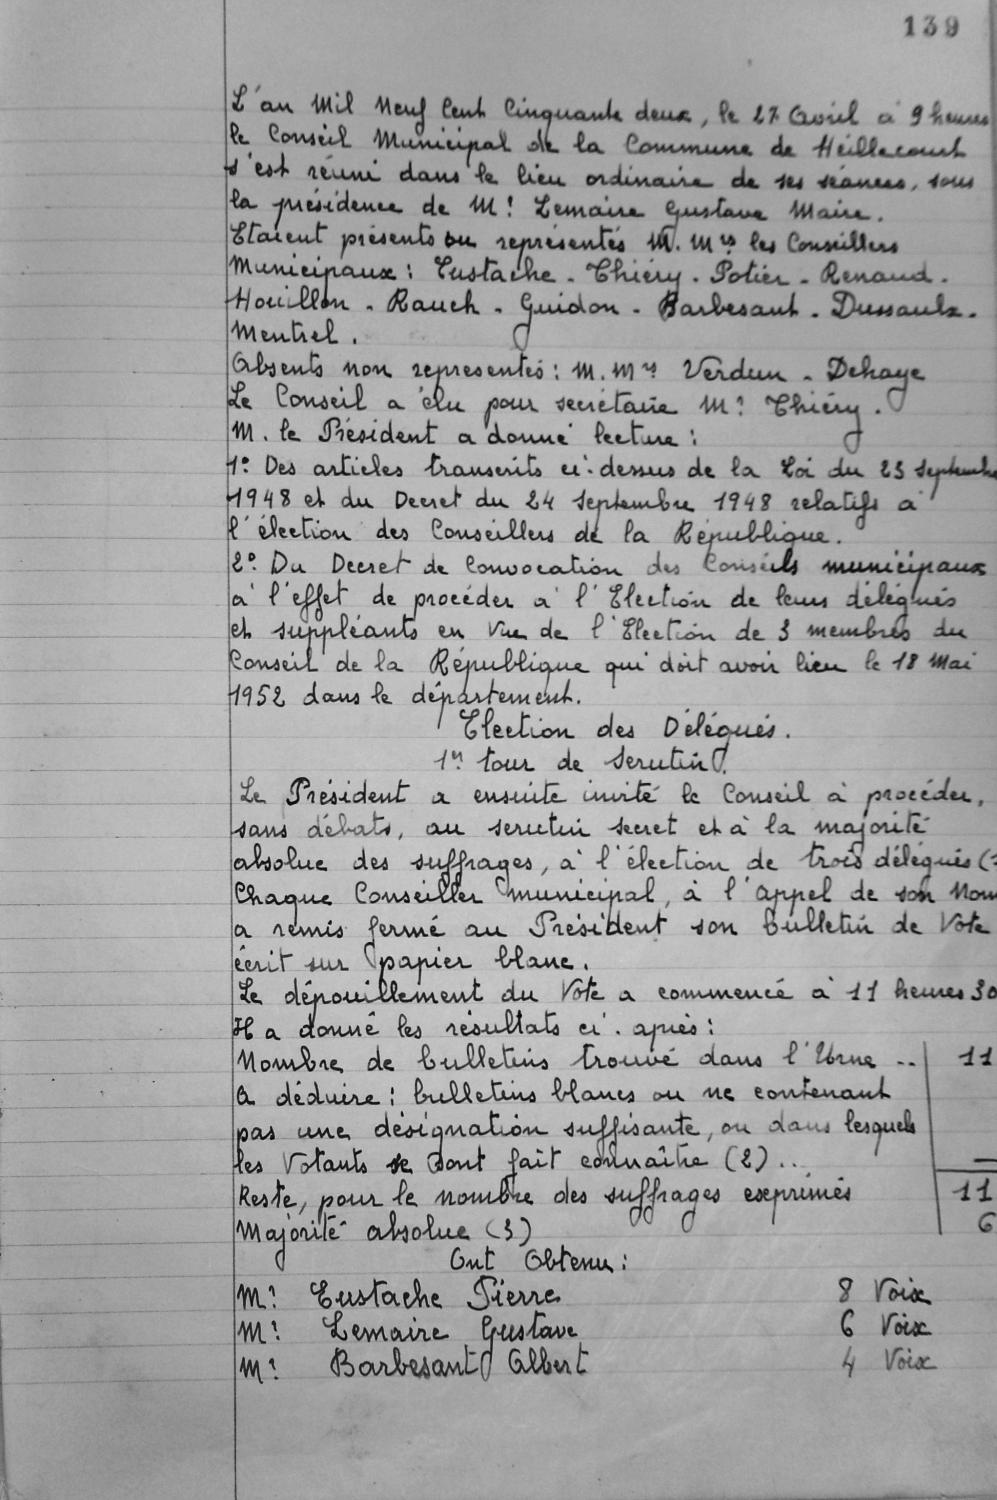 139
L'an Mil Neuf Cent Cinquante deux, le 27 Avril à 9 heures
le Conseil Municipal de la Commune de Heillecourt
s'est réuni dans le lieu ordinaire de ses séances, sous
la présidence de Mr Lemaire Gustave Maire.
Etaient présents ou représentés M. Mrs les Conseillers
Municipaux : Eustache - Thiéry - Potier - Renaud -
Houillon - Rauch - Guidon - Barbesant - Dussaulx -
Mentrel.
Absents non representés : M. Mrs Verdun - Dehaye
Le Conseil a élu pour secrétaire Mr Thiéry.
M. le Président a donné lecture :
1° Des articles transcrits ci-dessus de la Loi du 23 Septembre
1948 et du Decret du 24 Septembre 1948 relatifs à
l'élection des Conseillers de la République.
2° Du Decret de Convocation des Conseils municipaux
à l'effet de procéder à l'Election de leurs délégués
et suppléants en Vue de l'Election de 3 membres du
Conseil de la République qui doit avoir lieu le 18 Mai
1952 dans le département.
Election des Délégués.
1er tour de Scrutin.
Le Président a ensuite invité le Conseil à procéder,
sans débats, au scrutin secret et à la majorité
absolue des suffrages, à l'élection de trois délégués (
Chaque Conseiller municipal, à l'appel de son Nom
a remis fermé au Président son bulletin de Vote
écrit sur papier blanc.
Le dépouillement du Vote a commencé à 11 heures 30
Il a donné les résultats ci-après :
Nombre de bulletins trouvé dans l'Urne .. 11
A déduire : bulletins blancs ou ne contenant
pas une désignation suffisante, ou dans lesquels
les Votants se sont fait connaître (2) ... —
Reste, pour le nombre des suffrages exprimés 11
Majorité absolue (3) 6
Ont Obtenu :
Mr Eustache Pierre 8 Voix
Mr Lemaire Gustave 6 Voix
Mr Barbesant Albert 4 Voix